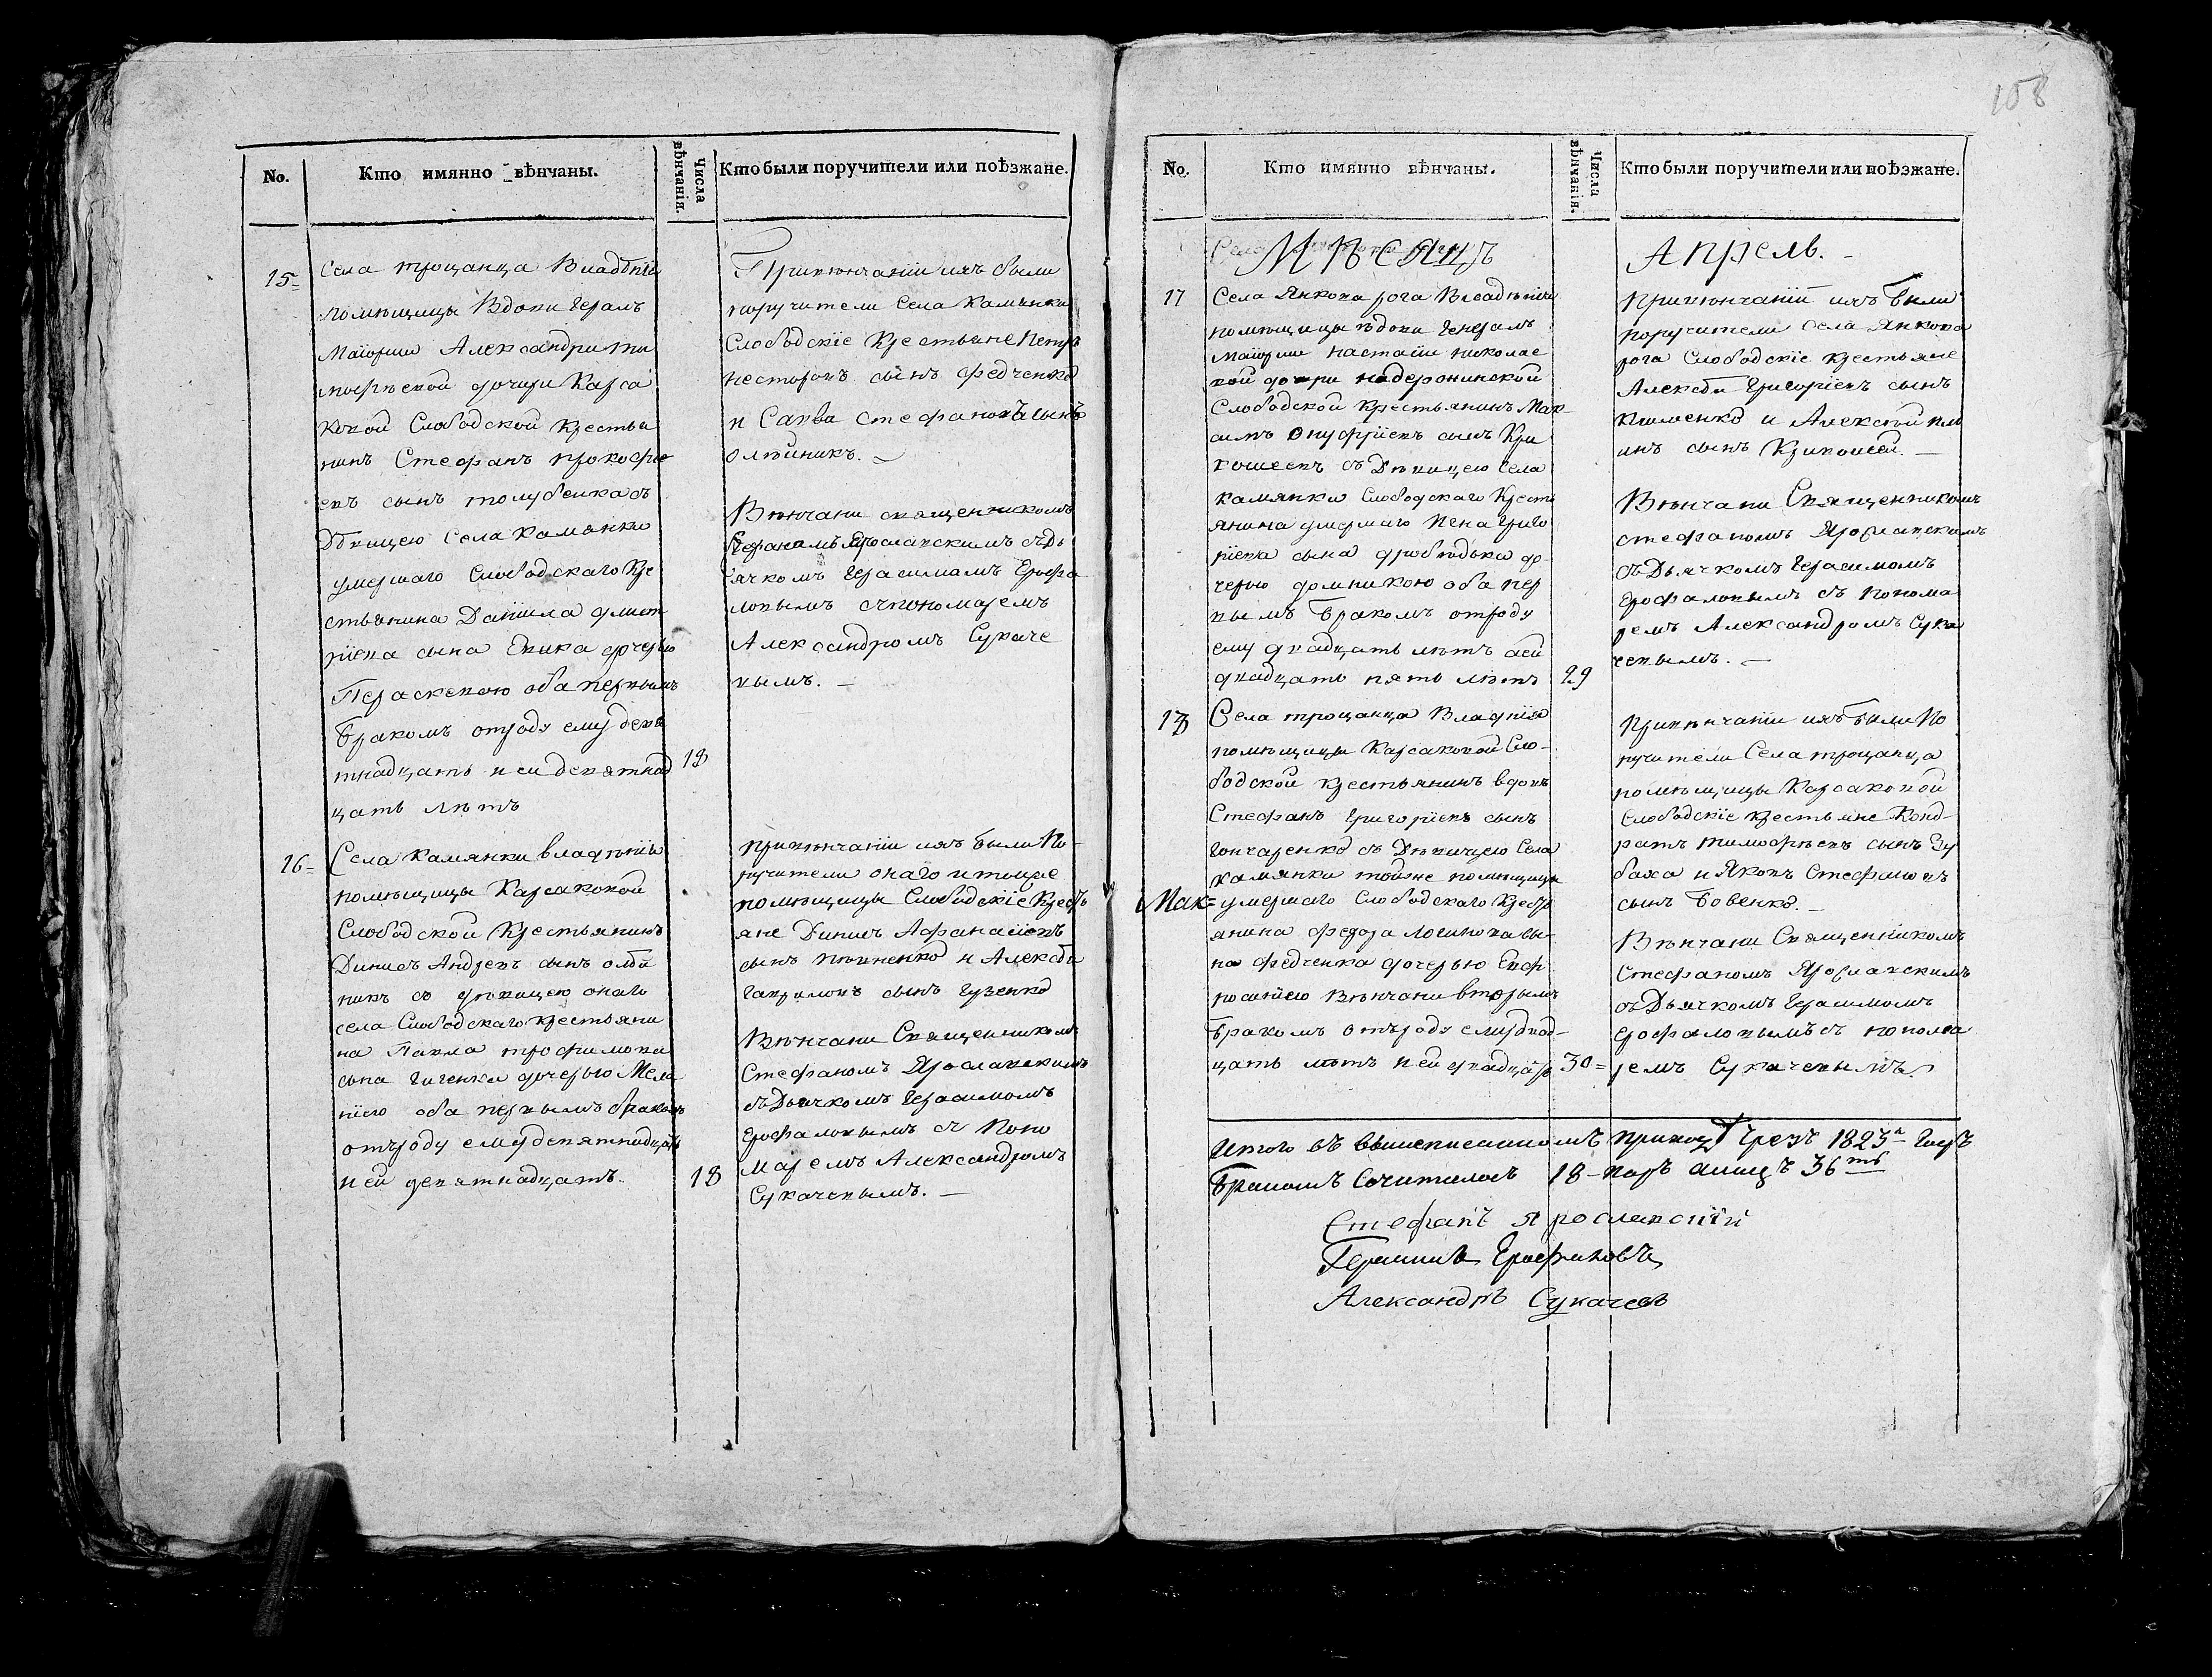 No.
Кто имянно вѣнчаны.
Числа вѣнчанія.
Кто были поручители или поѣзжане.
15
Села трощанца Владѣнія
помѣщицы Вдовы Герал
Маіорши Александры ти
мофѣевой дочери Карса
ковой Слободской Крестья
нинъ Стефанъ прокофіе
евъ сынъ толубенка съ
Дѣвицею Села Камянки
умершаго Слободскаго Кре
стьянина Даніила дмит
ріева сына дочерью
Параскевою оба первымъ
Бракомъ отроду ему девя
тнадцать и ей девятнад
цать лѣтъ
18
Привѣнчаніи ихъ были
поручители Села Камянки
Слободскіе Крестьяне Петръ
несторовъ сынъ федченко
и Савва Стефановъ сынъ
олѣйникъ.
Вѣнчаны священникомъ
Стефаномъ Ярославскимъ съ Дь
ячкомъ Герасимомъ Ерофа
ловымъ спономаремъ
Александромъ Сукаче
вымъ.
16
Села Камянки владѣнія
помѣщицы Карсаковой
Слободской Крестьянинъ
Динисъ Андреевъ сынъ олѣй
никъ съ дѣвицею онаго
села Слободскаго крестьяни
на Павла трофимова
сына дочерью Мела
ніею оба первымъ бракомъ
отъроду ему девятнадцать
и ей девятнадцать.
18
привѣнчаніи ихъ были По
ручители онаго и тойже
помѣщицы Слободскіе Крест
яне Динисъ Афанасіевъ
сынъ и Алексѣй
Гавриловъ сынъ Гузенко
Вѣнчаны Священникомъ
Стефаномъ Ярославскимъ
съ Дьячкомъ Герасимомъ
Ерофаловымъ съ Поно
маремъ Александромъ
Сукачевымъ.
158
No.
Кто имянно вѣнчаны.
Числа вѣнчанія.
Кто были поручители или поѣзжане.
Мѣсяцъ Апрель.
17
Села Янкова рога Владѣнія
помѣщицы вдовы Генерал
маіорши настасіи николае
вой дочери надержинской
Слободской Крестьянинъ Мак
симъ Онуфріевъ сынъ Кри
вошеевъ съ Дѣвицею Села
камянки Слободскаго Кресть
янина умершаго Григо
ріева сына до
черью домникою оба пер
вымъ Бракомъ отроду
ему двадцать лѣтъ аей
двадцать пять лѣтъ
29
Привѣнчаніи ихъ были
поручители Села Янкова
рога Слободскіе крестьяне
Алексѣй Григоріевъ сынъ
Клименко и Алексѣй
инъ сынъ Кривошей.
Вѣнчаны Священникомъ
стефаномъ Ярославскимъ
съ Дьячкомъ Герасимомъ
Ерофаловымъ съ понома
ремъ Александромъ Сука
чевымъ.
18
Села трощанца Владнія
помѣщицы Карсаковой Сло
бодской крестьянинъ вдовъ
Стефанъ Григоріевъ сынъ
Гончаренко съ Дѣвицею Села
камянки тойже помѣщицы
умершаго Слободскаго Крест
янина федора Логинова сы
на федченка дочерью Евф
росиніею вѣнчаны вторымъ
Бракомъ отъроду ему двад
цать лѣтъ и ей двадцать
30
Привѣнчаніи ихъ были По
ручители Села трощанца
помѣщицы Карсаковой
Слободскіе крестьяне Конд
ратъ тимофѣевъ сынъ Зу
баха и Яковъ Стефановъ
сынъ Бовенко.
Вѣнчаны Священникомъ
Стефаномъ Ярославскимъ
съ Дьячкомъ Герасимомъ
Ерофаловымъ съ понома
ремъ Сукачевымъ.
Итого въ вышеписанномъ приходѣ Чрезъ 1823й Годъ
Бракомъ Сочиталось 18 паръ алицъ 36ть
Стефанъ Ярославскій
Герасимъ Ерофаловъ
Александръ Сукачевъ